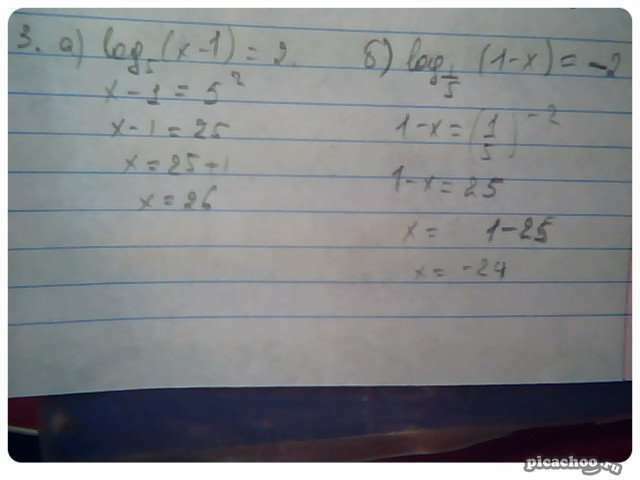 3. а) log₅(x-1) = 2.
x-1 = 5²
x-1 = 25
x = 25+1
x = 26
б) log_{1/5} (1-x) = -2
1-x = (1/5)⁻²
1-x = 25
x = 1-25
x = -24
picachoo.ru